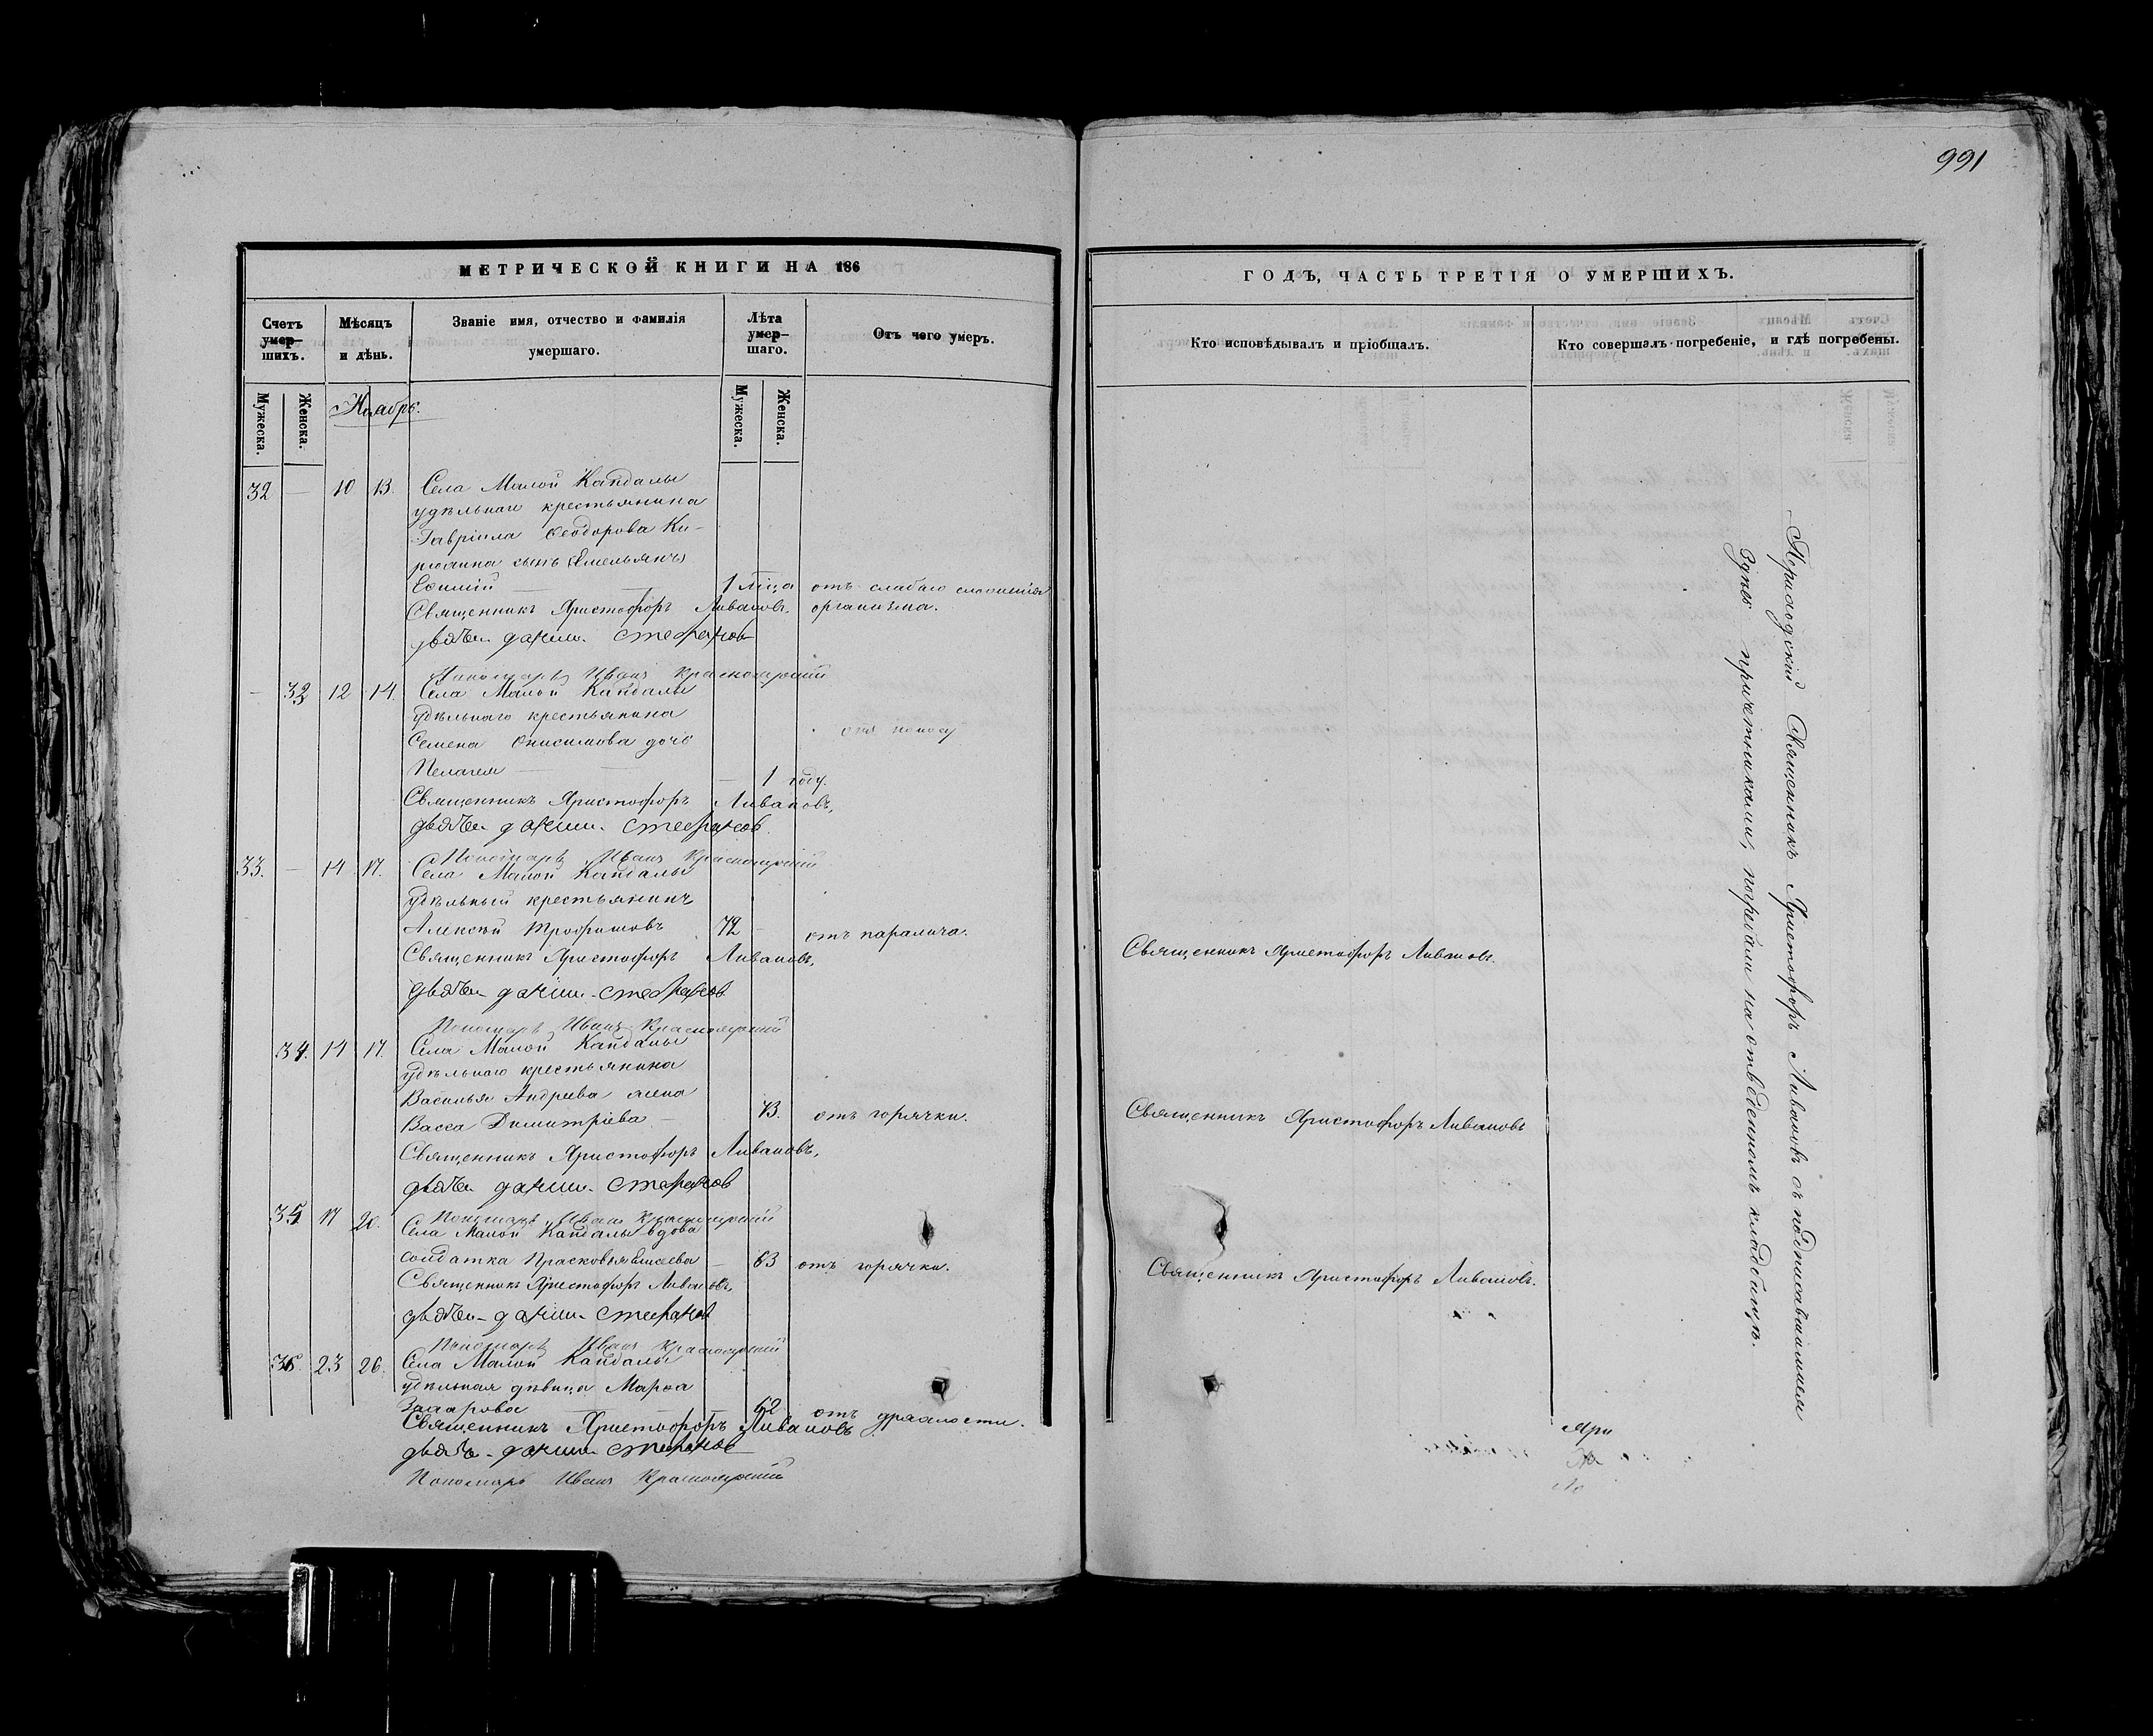 991
МЕТРИЧЕСКОЙ КНИГИ НА 186
Счетъ умер-шихъ.
Мѣсяцъ и день.
Званіе имя, отчество и фамилія умершаго.
Лѣта умер-шаго.
Отъ чего умеръ.
Мужеска.
Женска.
Ноябрь.
Мужеска.
Женска.
32 — 10 13. Села Малой Кандалы
удѣльнаго крестьянина
Гавріила Ѳеодорова Ки-
рюшина сынъ
1 мѣ[ся]ца отъ слабаго сложенія
Священникъ Христофоръ Ливановъ. организма.
дьячекъ Стефановъ
Пономарь Иванъ Красноярскій
— 32 12 14. Села Малой Кандалы
удѣльнаго крестьянина
Семена Онисимова дочь отъ поносу
Пелагея — — 1 году.
Священникъ Христофоръ Ливановъ,
дьячекъ Стефановъ.
Пономарь Иванъ Красноярскій
33. — 14 17. Села Малой Кандалы
удѣльный крестьянинъ
Алексѣй Трофимовъ 72 — отъ паралича.
Священникъ Христофоръ Ливановъ,
дьячекъ Стефановъ
Пономарь Иванъ Красноярскій
34. 14 17. Села Малой Кандалы
удѣльнаго крестьянина
Василья Андреева жена
Васса Димитріева — 73. отъ горячки.
Священникъ Христофоръ Ливановъ,
дьячекъ Стефановъ
Пономарь Иванъ Красноярскій
35 17 20. Села Малой Кандалы вдова
солдатка Прасковья — 63 отъ горячки.
Священникъ Христофоръ Ливановъ,
дьячекъ Стефановъ
Пономарь Иванъ Красноярскій
36. 23 26. Села Малой Кандалы
удѣльная дѣвица Марѳа
Захарова — — 62 отъ дряхлости.
Священникъ Христофоръ Ливановъ
дьячекъ Стефановъ
Пономарь Иванъ Красноярскій
ГОДЪ, ЧАСТЬ ТРЕТІЯ О УМЕРШИХЪ.
Кто исповѣдывалъ и пріобщалъ.
Кто совершалъ погребеніе, и гдѣ погребены.
Священникъ Христофоръ Ливановъ.
Священникъ Христофоръ Ливановъ
Священникъ Христофоръ Ливановъ.
Приходскій Священникъ Христофоръ Ливановъ съ подписавшимися
здѣсь причетниками, погребали на отведенномъ кладбищѣ.